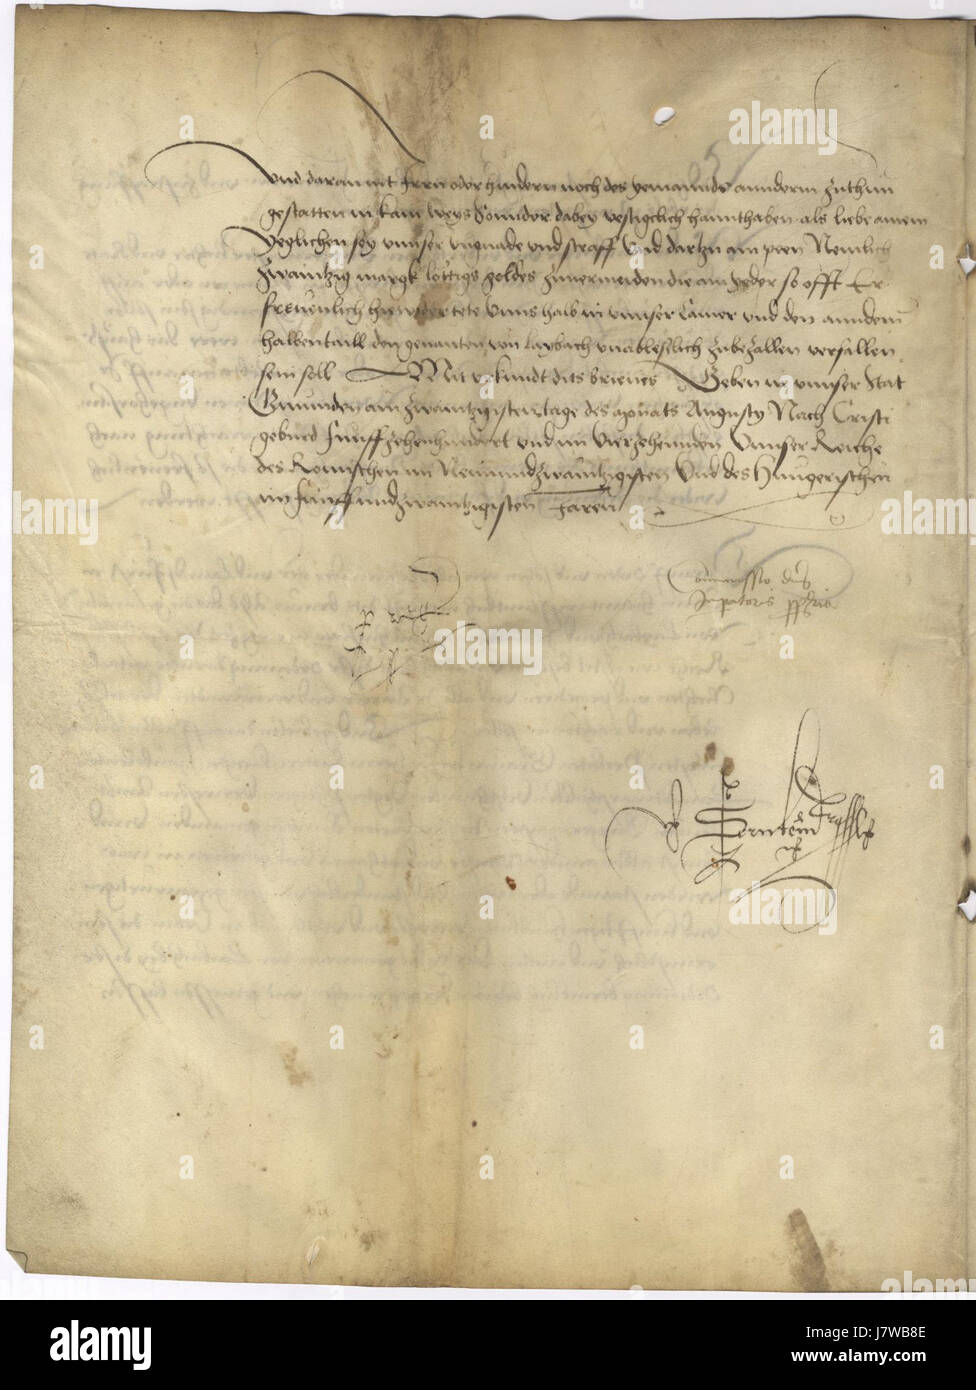 Und daran nit Irren oder hindern noch des yemannds annderm zuthun
gestatten in kain weys Sonnder dabey vestigclich hannthaben als liebe ainem
Yeglichen sey unnser ungnade und straff Und dartzu ain peen Nemlich
Zwaintzig margk lottigs goldes zuvermeiden die ain yeder so offt Er
frevenlich hiewider tete Unns halb in unnser Camer und den anndern
halbentaill den genanten von Laybach unableslich zubezallen verfallen
sein soll Mit urkundt dits brieves Geben in unnser Stat
Gmunden am Zwaintzigisten tage des Monats Augusty Nach Cristi
geburd Funffzehenhundert und im Vierzehennden Unnser Reiche
des Romischen im Newnundzwaintzigisten Und des Hungerischen
im Funffundzwaintzigisten Jaren
Commissio dni
Imperatoris ppria
a
alamy
alamy stock photo
Image ID: J7WB8E
www.alamy.com